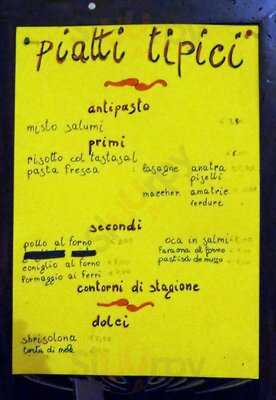 piatti tipici
antipasto
misto salumi
primi
risotto col tastasal
pasta fresca
lasagne anatra
piselli
maccher. amatric
verdure
secondi
pollo al forno
coniglio al forno
formaggio ai ferri
oca in salmì
faraona al forno
pastisà de musso
contorni di stagione
dolci
sbrisolona
torta di mele